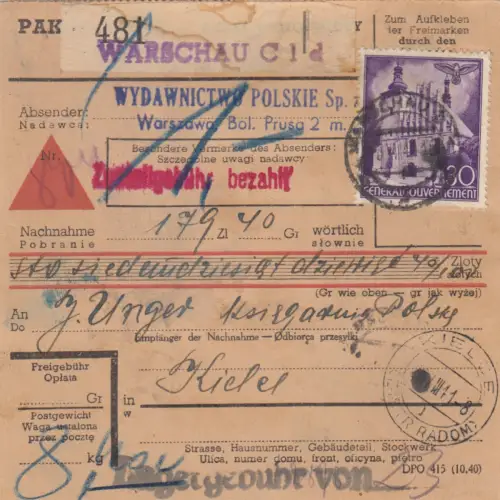 PAK 481
WARSCHAU C 1 d
Zum Aufkleben
der Freimarken
durch den
WYDAWNICTWO POLSKIE Sp.
Warszawa, Bol. Prusa 2 m.
Absender:
Nadawca:
Besondere Vermerke des Absenders:
Szczególne uwagi nadawcy
Nr.
Zustellgebühr bezahlt
30
GENERALGOUVERNEMENT
Nachnahme 179 Zl 40 Gr wörtlich
Pobranie słownie
sto siedemdziesiąt dziewięć 40/100 Złoty
złotych
(Gr wie oben — gr jak wyżej)
An J. Unger Księgarnia Polska
Do
Empfänger der Nachnahme — Odbiorca przesyłki
KIELCE
(DISTR RADOM)
Freigebühr
Opłata
Gr
in
w
Kielce
Postgewicht
Waga ustalona
przez pocztę
8 kg
Strasse, Hausnummer, Gebäudeteil, Stockwerk
Ulica, numer domu, front, oficyna, piętro
DPO 415 (10.40)
Lagergebühr von 23